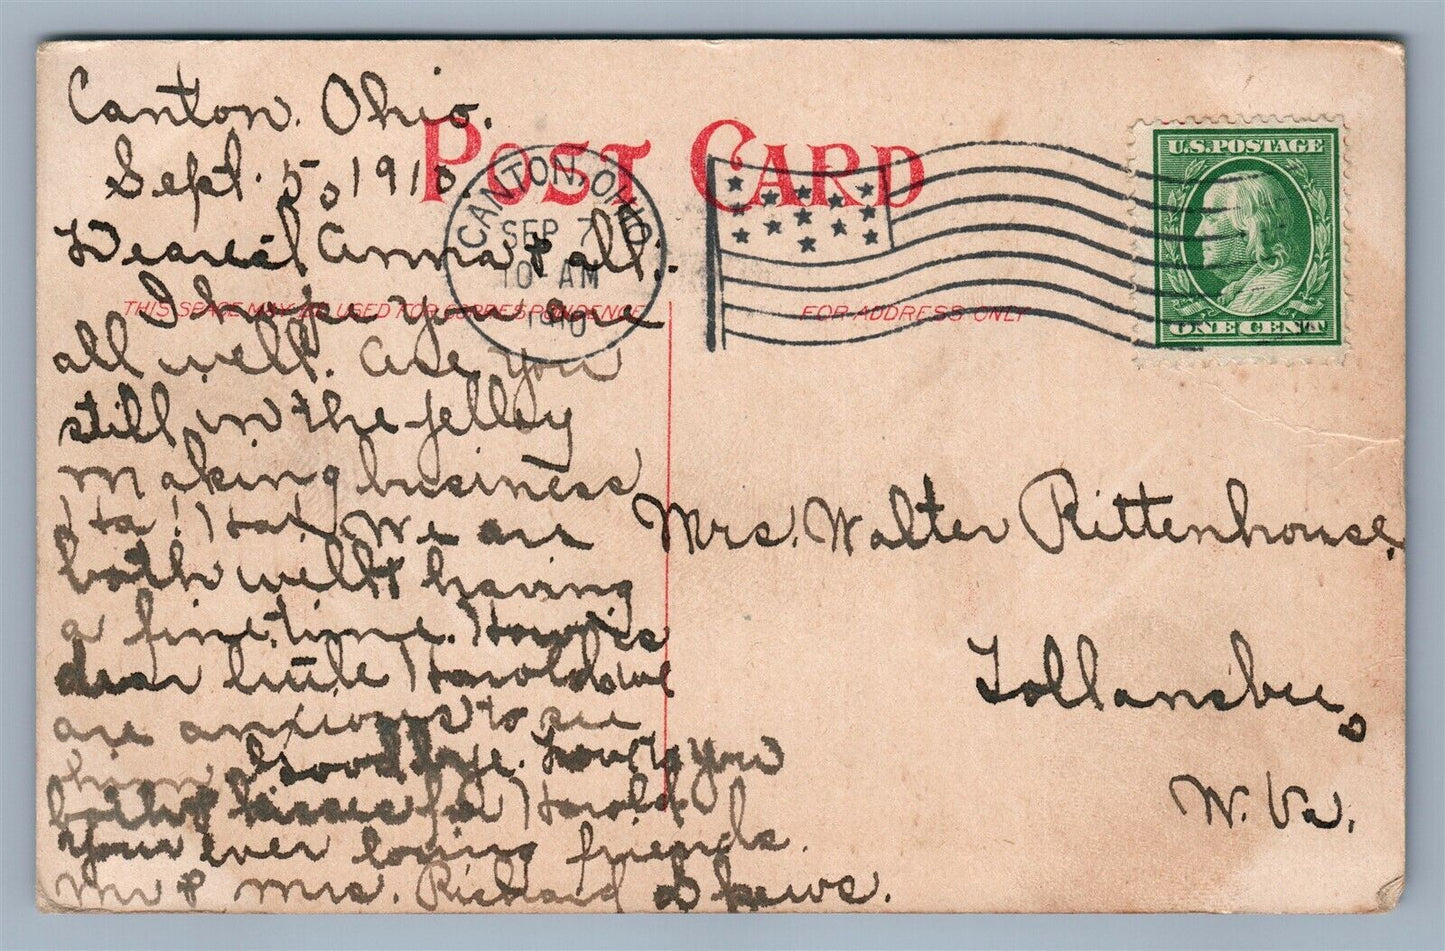 Canton. Ohio.
Sept. 5, 1910
Dearest Anna & all.
I hope you are
all well. are you
still in the jelley
making business
Ha! Ha! We are
both well & having
a fine time. How is
dear little Harold, we
are anxious to see
him, Goodbye. Love to you
both & kisses for Harold.
Your ever loving friends.
Mr & Mrs. Richard
POST CARD
THIS SPACE MAY BE USED FOR CORRESPONDENCE
FOR ADDRESS ONLY
CANTON, OHIO
SEP 7
10 AM
1910
U.S. POSTAGE
ONE CENT
Mrs. Walter Rittenhouse,
Follansbee,
W. Va.